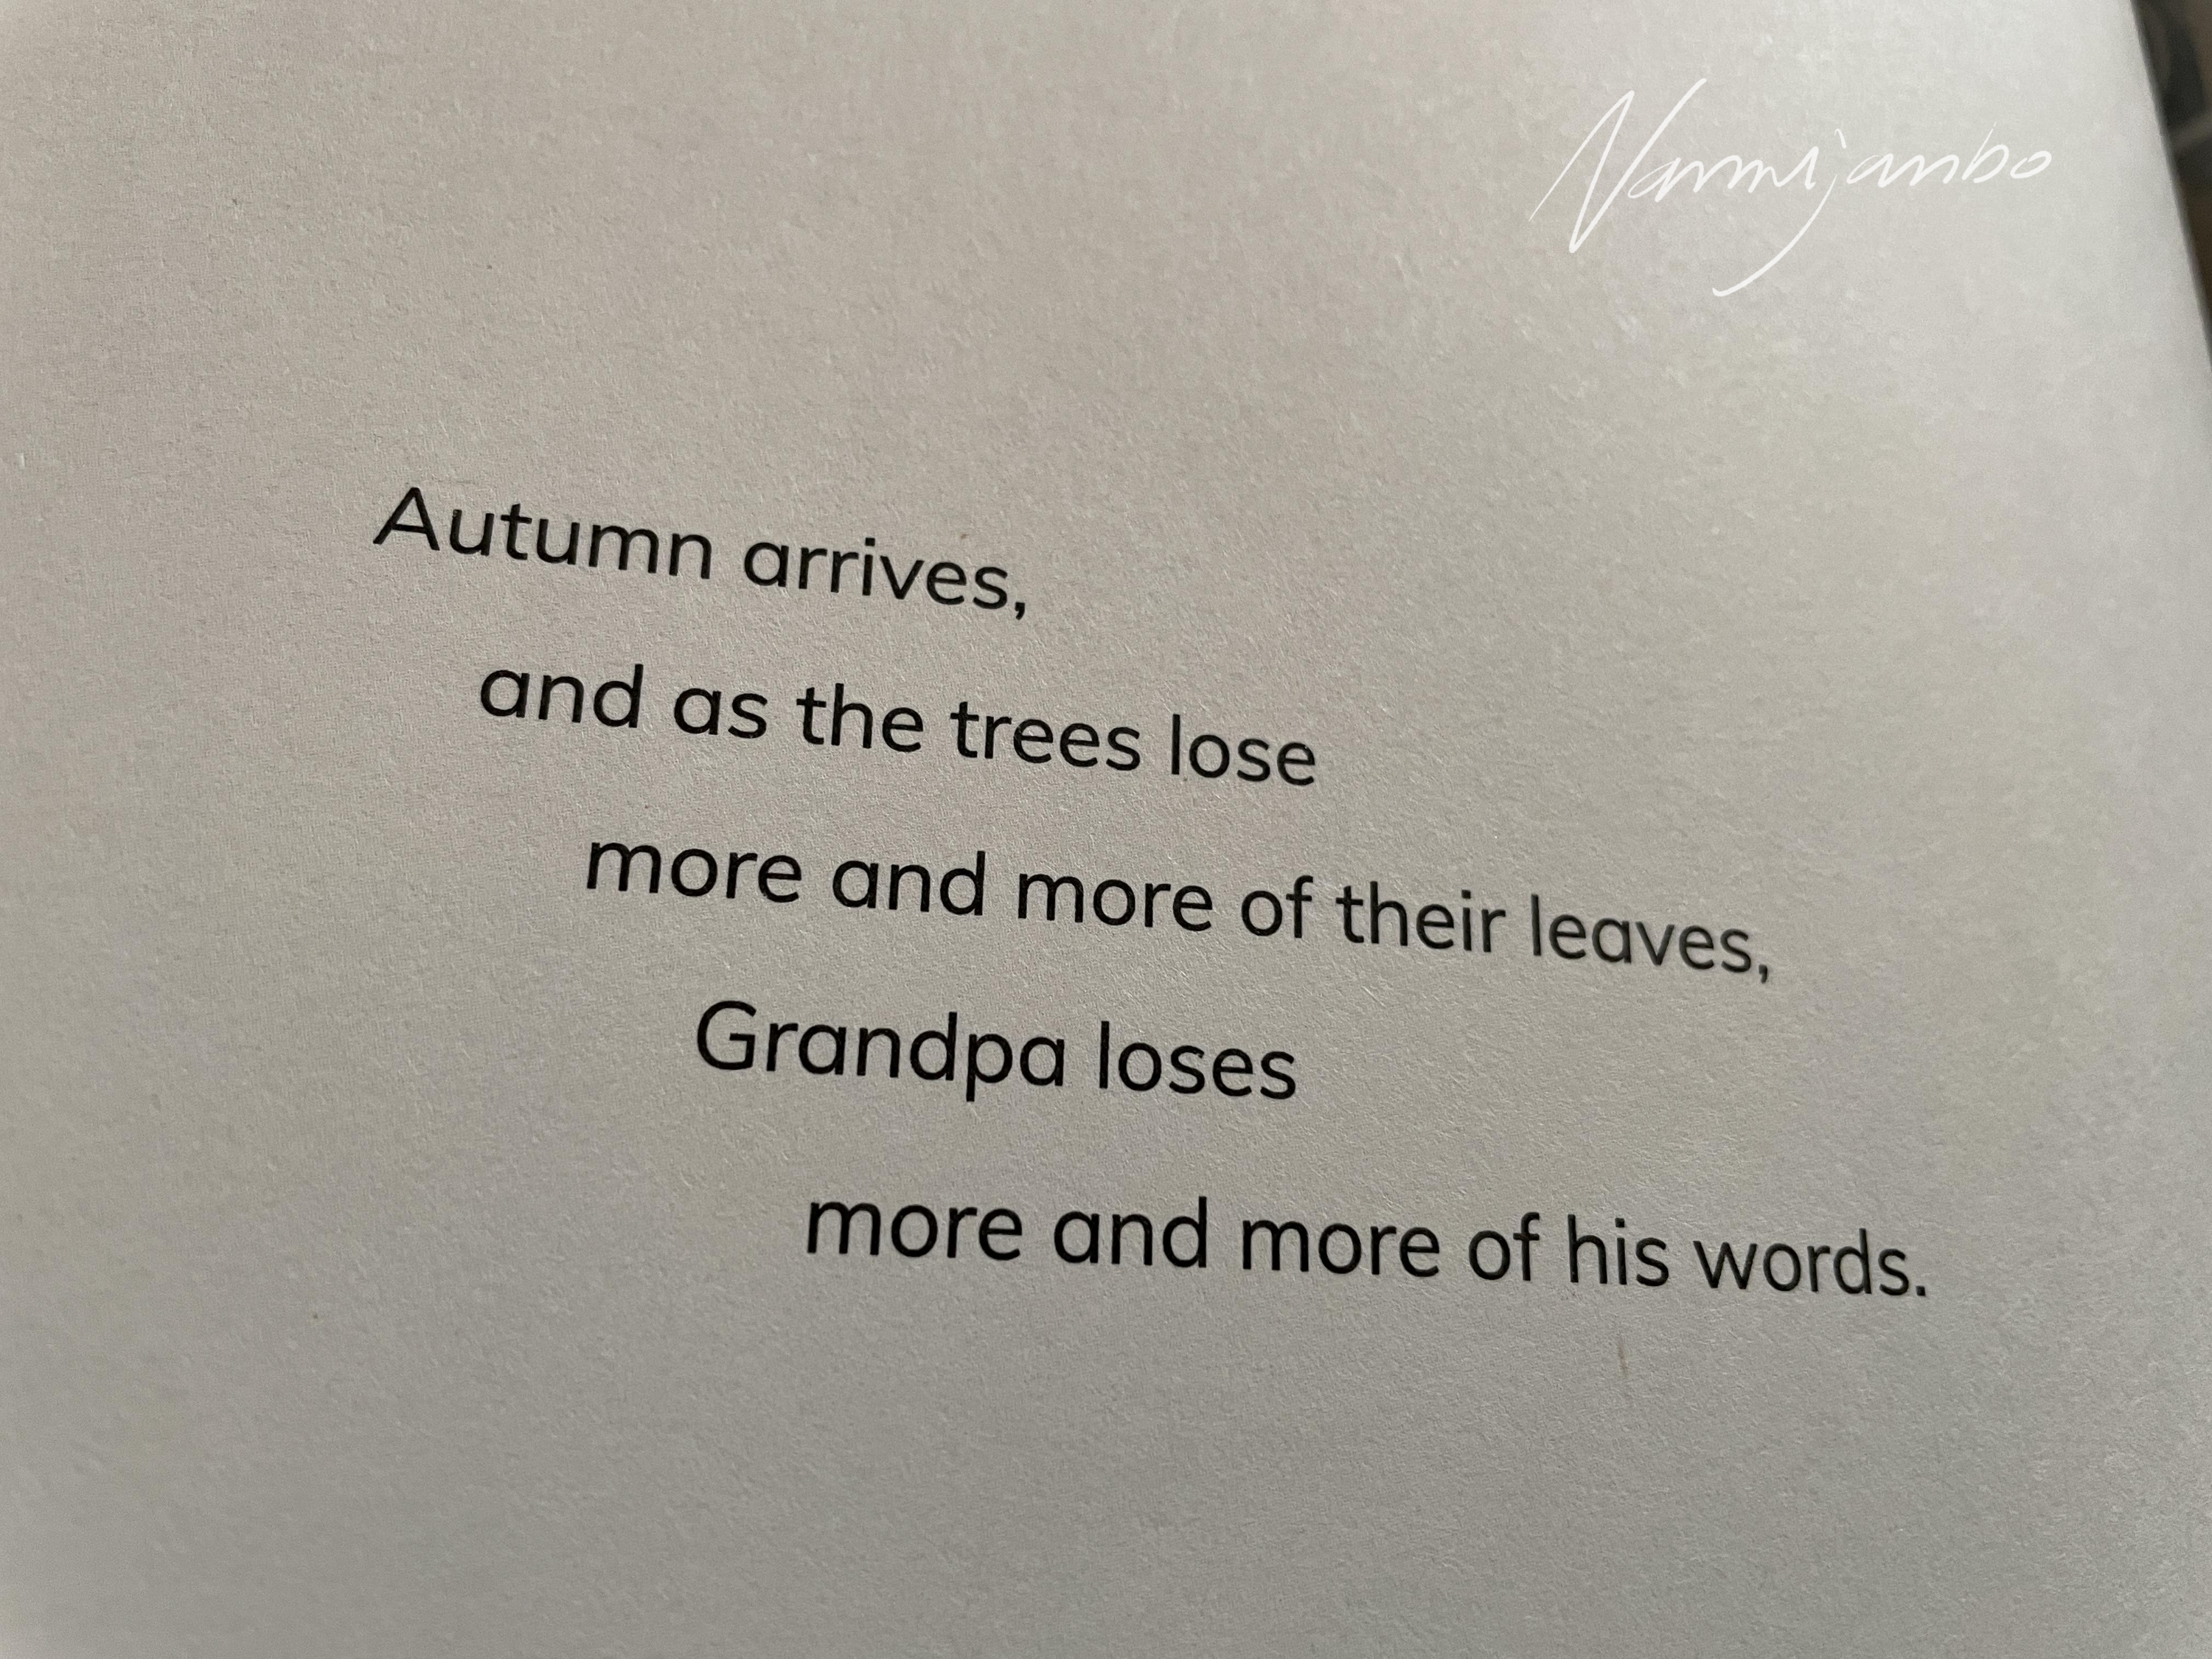 Autumn arrives,
and as the trees lose
more and more of their leaves,
Grandpa loses
more and more of his words.